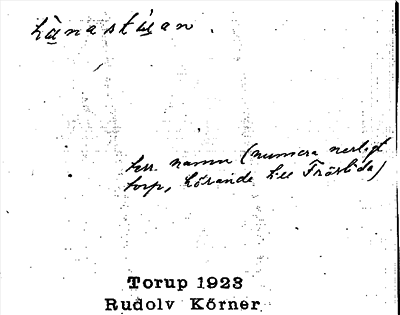 hànastụ́an.
ter. namn (numera nerlagt
torp, hörande till Fröslida)
Torup 1923
Rudolv Körner